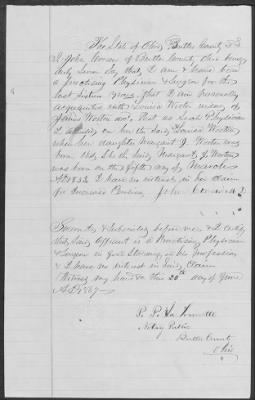 The State of Ohio Butler County SS
I John Corson of Butler County Ohio being
duly Sworn Say that I am & have been
a practicing Physician & Surgeon for the
last Sixteen years, that I am personally
acquainted with Louisa Weston widow of
James Weston decd. That as such Physician
I attended on her the said Louisa Weston
when her daughter Margaret J. Weston was
born that She the said Margaret J. Weston
was born on the fifth day of March
AD 1852 I have no interest in her Claim
for increased Pension John
Sworn to & Subscribed before me & I certify
that said Affiant is a Practicing Physician
& Surgeon in Good Standing in his profession
& I have no interest in said Claim
Witness my hand this 20th day of June
AD 1867
P. P.
Notary Public
Butler County
Ohio